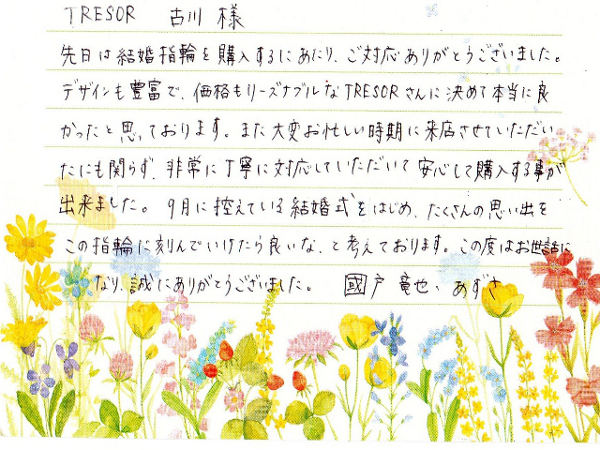 TRESOR 古川 様
先日は結婚指輪を購入するにあたり、ご対応ありがとうございました。
デザインも豊富で、価格もリーズナブルなTRESORさんに決めて本当に良
かったと思っております。また大変お忙しい時期に来店させていただい
たにも関らず、非常に丁寧に対応していただいて安心して購入する事が
出来ました。9月に控えている結婚式をはじめ、たくさんの思い出を
この指輪に刻んでいけたら良いな、と考えております。この度はお世話に
なり、誠にありがとうございました。 國戸 竜也、あずさ